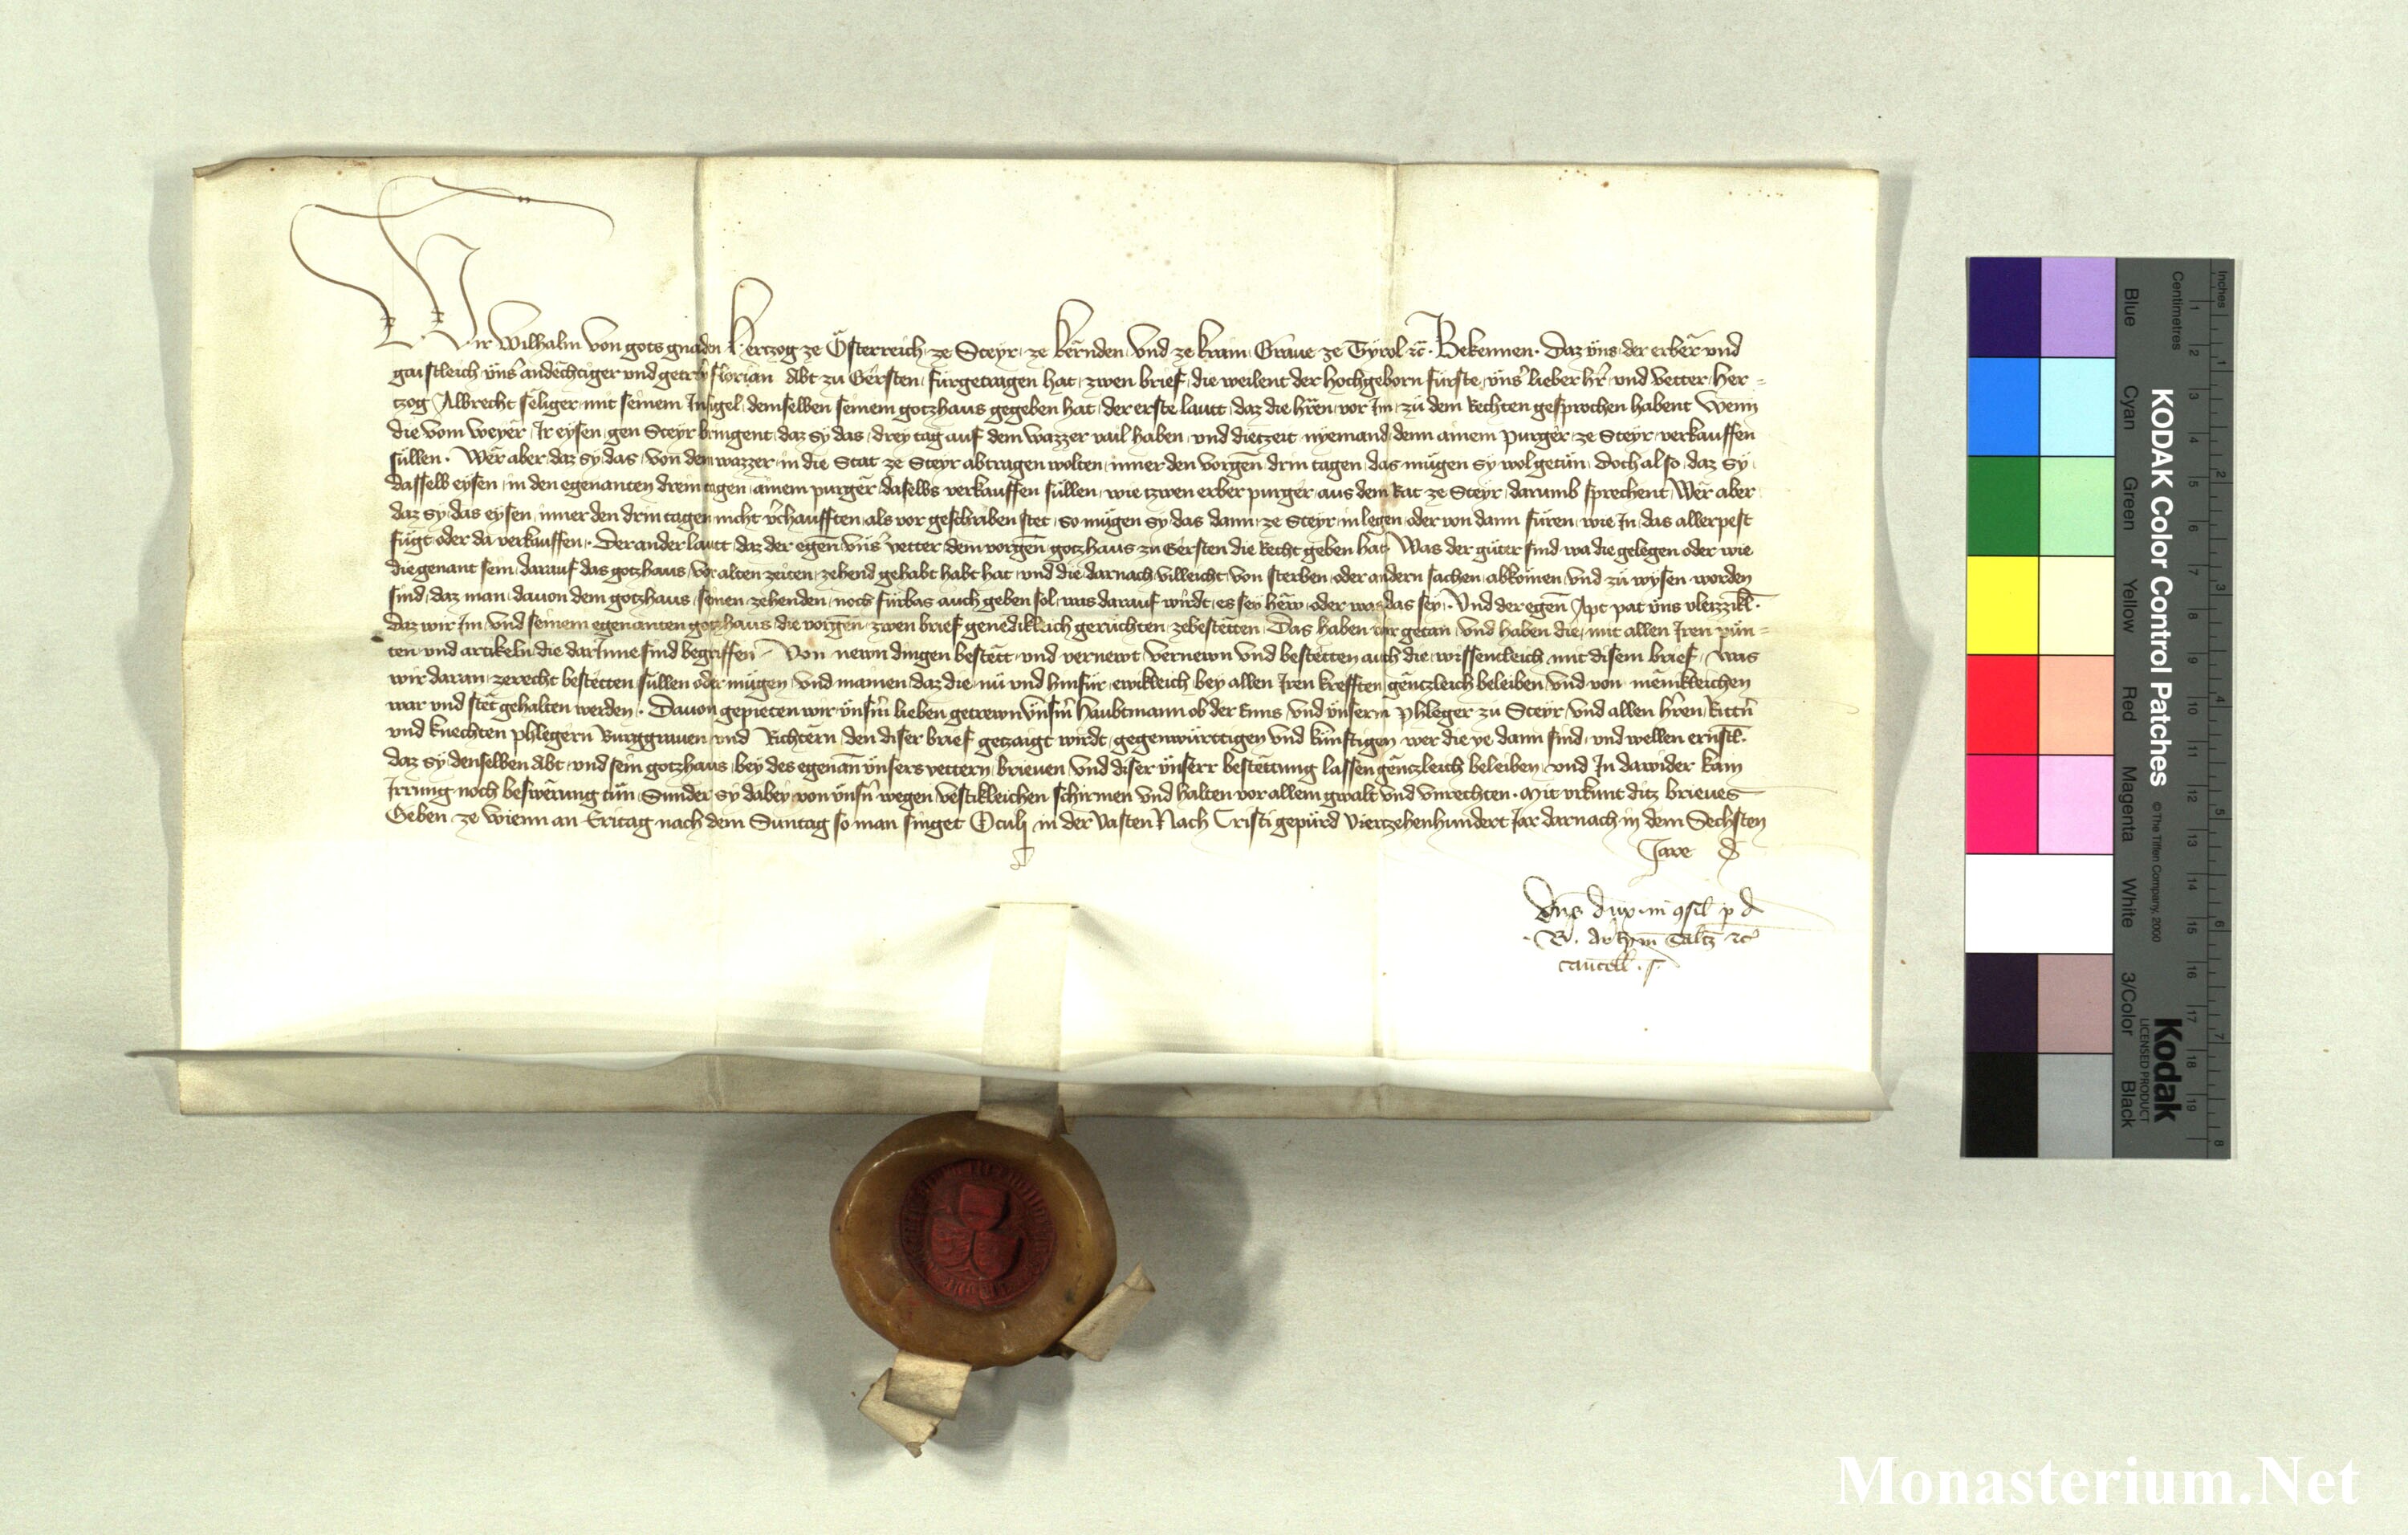 Wir Wilhalm von gots gnaden Hertzog ze Österreich ze Steyr ze Kërnden und ze Krain Graue ze Tyrol ꝛc̄. Bekennen. Daz uns der erber und
gaistleich unsˀ andëchtiger und getrewˀ Florian Abt zu Gërsten fürgetragen hat zwen brief die weilent der hochgeborn fürste unsˀ lieber hˀr und vetter Her=
tzog Albrecht seliger mit seinem Insigel demselben seinem gotzhaus gegeben hat der erste lautt daz die hˀren vor Im zu dem Rechten gesprochen habent Wenn
die vom weyer Ir eysen gen Steyr bringent daz sy das drey tag auf dem wazzer vail haben und die tzeit nyemand denn ainem purger ze Steyr verkauffen
süllen. Wër aber daz sy das von dem wazzer in die Stat ze Steyr abtragen wolten inner den vorgen̄ drin tagen das mügen sy wol getün doch also daz sy
dasselb eysen in den egenanten drein tagen ainem purger daselbs verkauffen süllen wie tzwen erber purger aus dem Rat ze Steyr darumb sprechent Wër aber
daz sy das eysen inner den drin tagen nicht vˀchaufften als vor geschriben stet so mügen sy das dann ze Steyr in legen oder von dann füren wie In das allerpest
fügt oder da verkauffen. Der ander lautt daz der egen̄ unsˀ vetter dem vorgen̄ gotzhaus zu Gërsten die Recht geben hat Was der güter sind wa die gelegen oder wie
die genant sein darauf das gotzhaus vor alten zeiten zehend gehabt habt hat und die darnach villeicht von sterben oder andern sachen abkomen und zu wysen worden
sind daz man dauon dem gotzhaus seinen zehenden noch fürbas auch geben sol was darauf wirdt es sey hëw oder was das sey. Und der egen̄ Apt pat uns vleizzikl̄.
daz wir Im und seinem egenanten gotzhaus die vorgen̄ zwen brief genedikleich geruchten ze bestëtten Das haben wir getan und haben die mit allen Iren pün=
ten und artikeln die darInne sind begriffen Von newn dingen bestëtt und vernewt vernewn und bestëtten auch die wissentleich mit disem brief Was
wir daran zerecht bestëtten süllen oder mügen und mainen daz die nu und hinfür ewikleich bey allen Iren krefften gëntzleich beleiben und von mënikleichen
war und stët gehalten werden. Dauon gepieten wir unsˀm lieben getrewn unsˀm Haubtmann ob der Enns und unserm Phleger zu Steyr und allen hˀren Rittˀn
und knechten phlegern Burggrauen und Richtern den diser brief getzaigt wirdt gegenwürttigen und künftigen wer die ye dann sind und wellen ernstl̄.
daz sy denselben Abt und sein gotzhaus bey des egenan̄ unsers vettern brieuen und diser unserr bestëttung lassen gëntzleich beleiben und In dawider kain
Irrung noch beswërung tün Sunder sy dabey von unsˀn wegen vestikleichen schirmen und halten vor allem gwalt und unrechten. Mit urkunt ditz brieues
Geben ze Wienn an Eritag nach dem Suntag so man singet Oculj in der Vasten Nach Cristi gepürd Viertzehenhundert Jar darnach in dem Sechsten
Jare
dn̄s dux in ꝯsil p d
cancell.
KODAK Color Control Patches
© The Tiffen Company, 2000
Kodak
LICENSED PRODUCT
Inches 1 2 3 4 5 6 7 8
Centimetres 1 2 3 4 5 6 7 8 9 10 11 12 13 14 15 16 17 18 19
Blue Cyan Green Yellow Red Magenta White 3/Color Black
Monasterium.Net